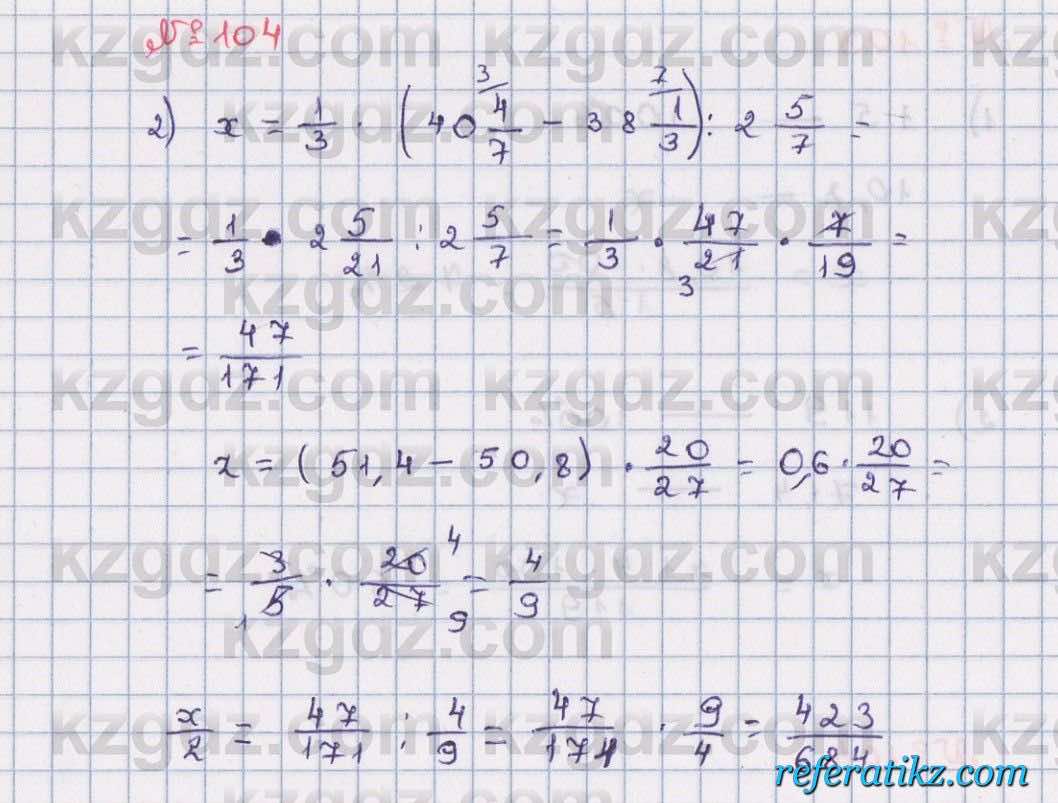 № 104
2) x = 1/3 · (40 4/7 - 38 1/3) : 2 5/7 =
= 1/3 · 2 5/21 : 2 5/7 = 1/3 · 47/21 · 7/19 =
= 47/171
x = (51,4 - 50,8) · 20/27 = 0,6 · 20/27 =
= 3/5 · 20/27 = 4/9
x/2 = 47/171 : 4/9 = 47/171 · 9/4 = 423/684
kzgdz.com
referatikz.com